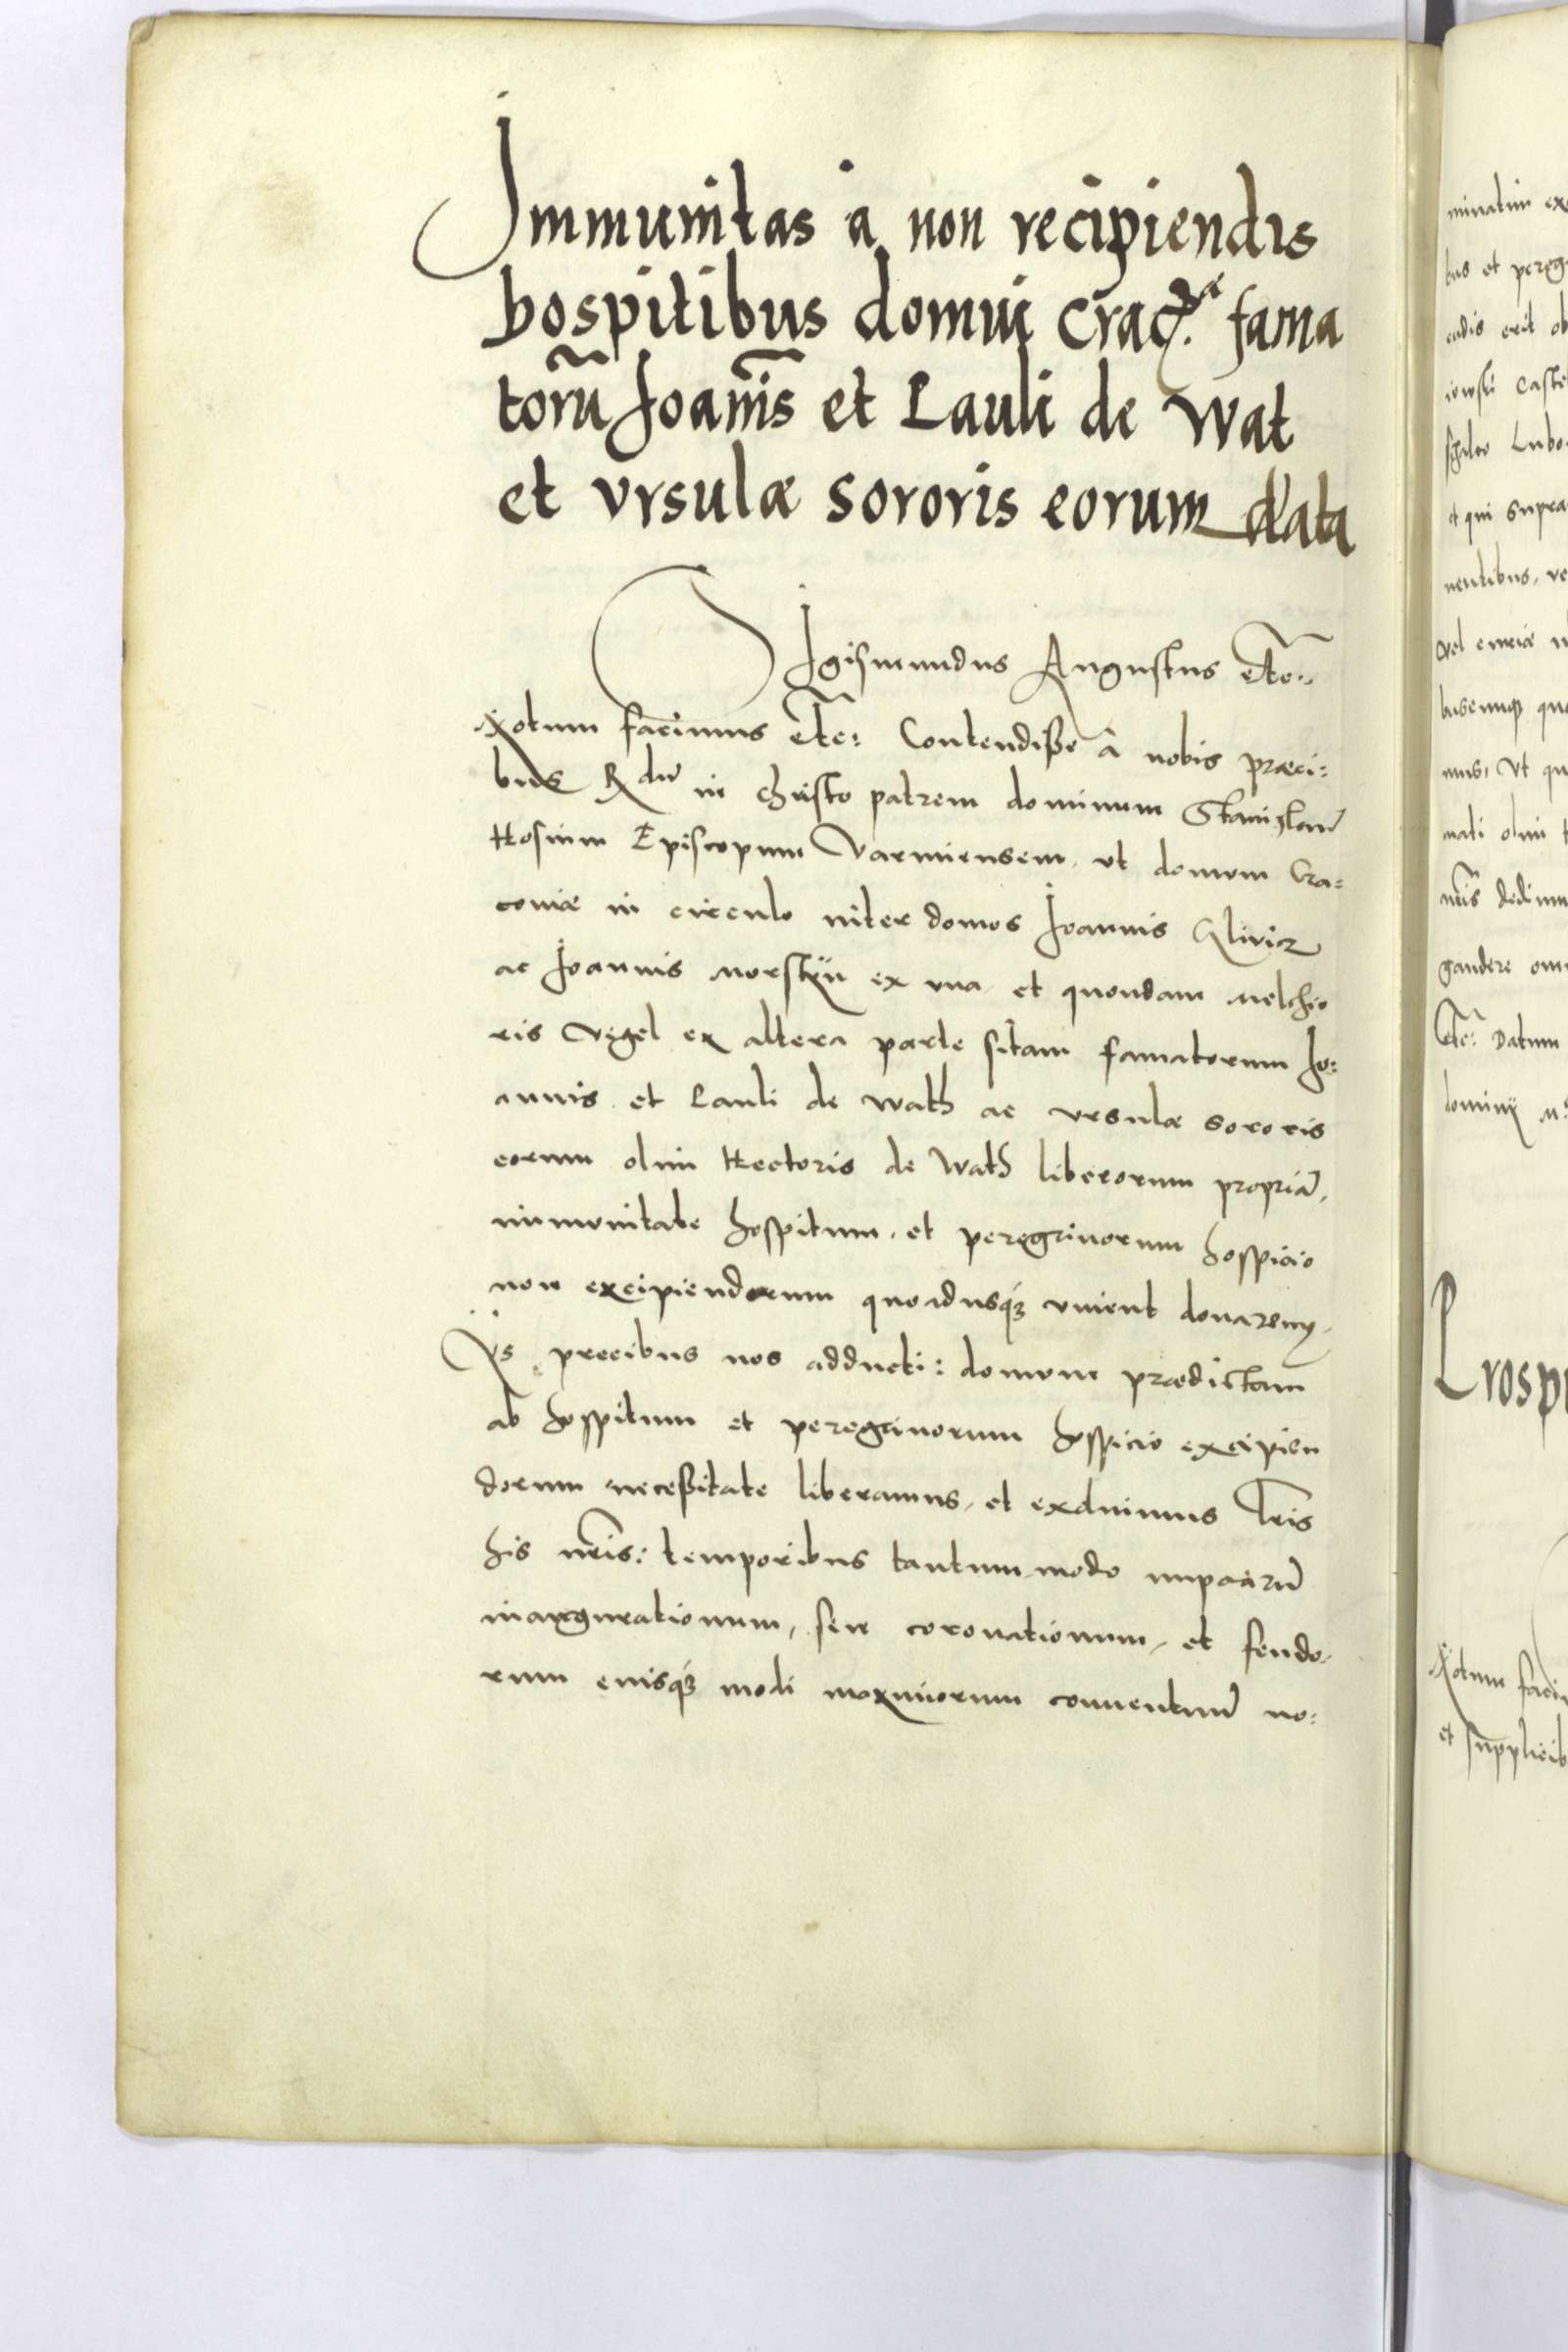 Immunitas à non recipiendis
hospitibus domui Crac. fama
torũ Joannis et Pauli de Wat
et Vrsulæ sororis eorum data
Sigismundus Augustus etc:
Notum facimus etc: Contendiße à nobis præci:
bus Rdũ in christo patrem dominum Stanislaũ
Hosium Episcopum Varmiensem, ut domum Cra:
couiæ in circulo inter domos Joannis
ac Joannis Morstÿn ex una, et quondam Melchio
ris Vigel ex altera parte sitam famatorum Jo:
annis et Pauli de Wath ac Vrsulæ sororis
eorum olim Hectoris de Wath liberorum propriã,
immunitate hospitum, et peregrinorum hospicio
non excipiendorum quoadusq3 viuent donaremꝰ,
Ijs precibus nos adducti: domum prædictam
ab hospitum et peregrinorum hospicio excipien
dorum neceßitate liberamus, et eximimus Lris
his nris: temporibus tantum modo nupciarũ
inaugurationum, seu coronationum, et feudo,
rum cuiusq3 modi maximorum conuentuũ no:
minatim ex
bus et pereg
endis erit ob
iowski Caste
Lubo
et qui supra
nentibus, ve
vel curiæ n
buscunq3 quo
mus, Ut qu
mati olim H
nris dedimu
gaudere om
etc: Datum
dominij n:
Prospi
Notum faci
et supplicib